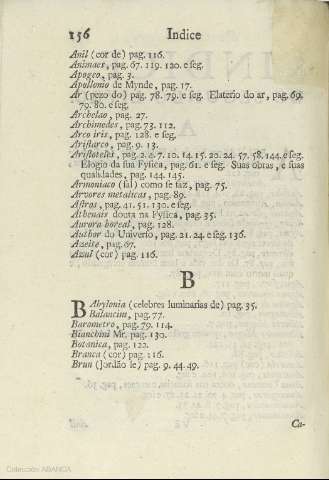 156 Indice
Anil (cor de) pag. 116.
Animaes, pag. 67. 119. 120. e seg.
Apogeo, pag. 3.
Apollonio de Mynde, pag. 17.
Ar (pezo do) pag. 78. 79. e seg. Elaterio do ar, pag. 69.
79. 80. e seg.
Archelao, pag. 27.
Archimedes, pag. 73. 112.
Arco iris, pag. 128. e seg.
Aristarco, pag. 9. 13.
Aristoteles, pag. 2. 4. 7. 10. 14. 15. 20. 24. 57. 58. 144. e seg.
Elogio da sua Fysica, pag. 61. e seg. Suas obras, e suas
qualidades, pag. 144. 145.
Armoniaco (sal) como se faz, pag. 75.
Arvores metalicas, pag. 89.
Astros, pag. 41. 51. 130. e seg.
Athenais douta na Fysica, pag. 35.
Aurora boreal, pag. 128.
Author do Universo, pag. 21. 24. e seg. 136.
Azeite, pag. 67.
Azul (cor) pag. 116.
B
BAbylonia (celebres luminarias de) pag. 35.
Balancim, pag. 77.
Barometro, pag. 79. 114.
Bianchini Mr. pag. 130.
Botanica, pag. 122.
Branca (cor) pag. 116.
Brun (Jordão le) pag. 9. 44. 49.
Ca-
Colección ABANCA